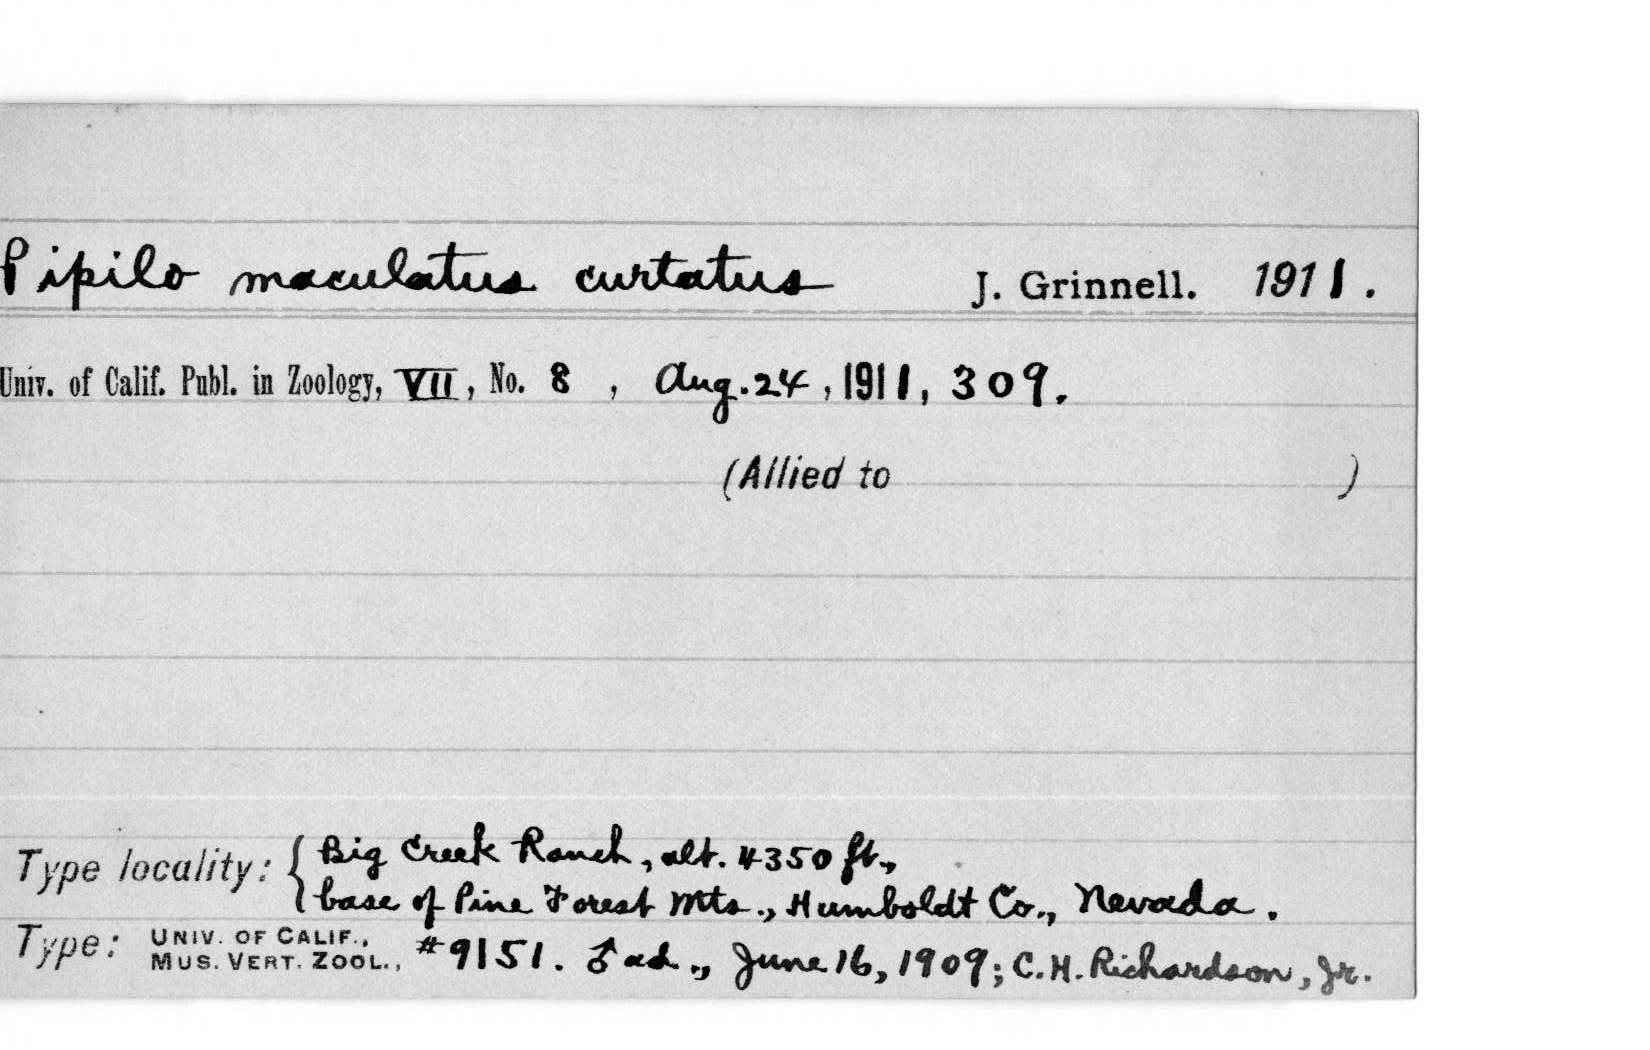 Pipilo maculatus curtatus J. Grinnell. 1911.
Univ. of Calif. Publ. in Zoology, VII, No. 8, Aug. 24, 1911, 309.
(Allied to )
Type locality: { Big Creek Ranch, alt. 4350 ft.,
base of Pine Forest Mts., Humboldt Co., Nevada.
Type: UNIV. OF CALIF., MUS. VERT. ZOOL., #9151. ♂ ad., June 16, 1909; C. H. Richardson, Jr.